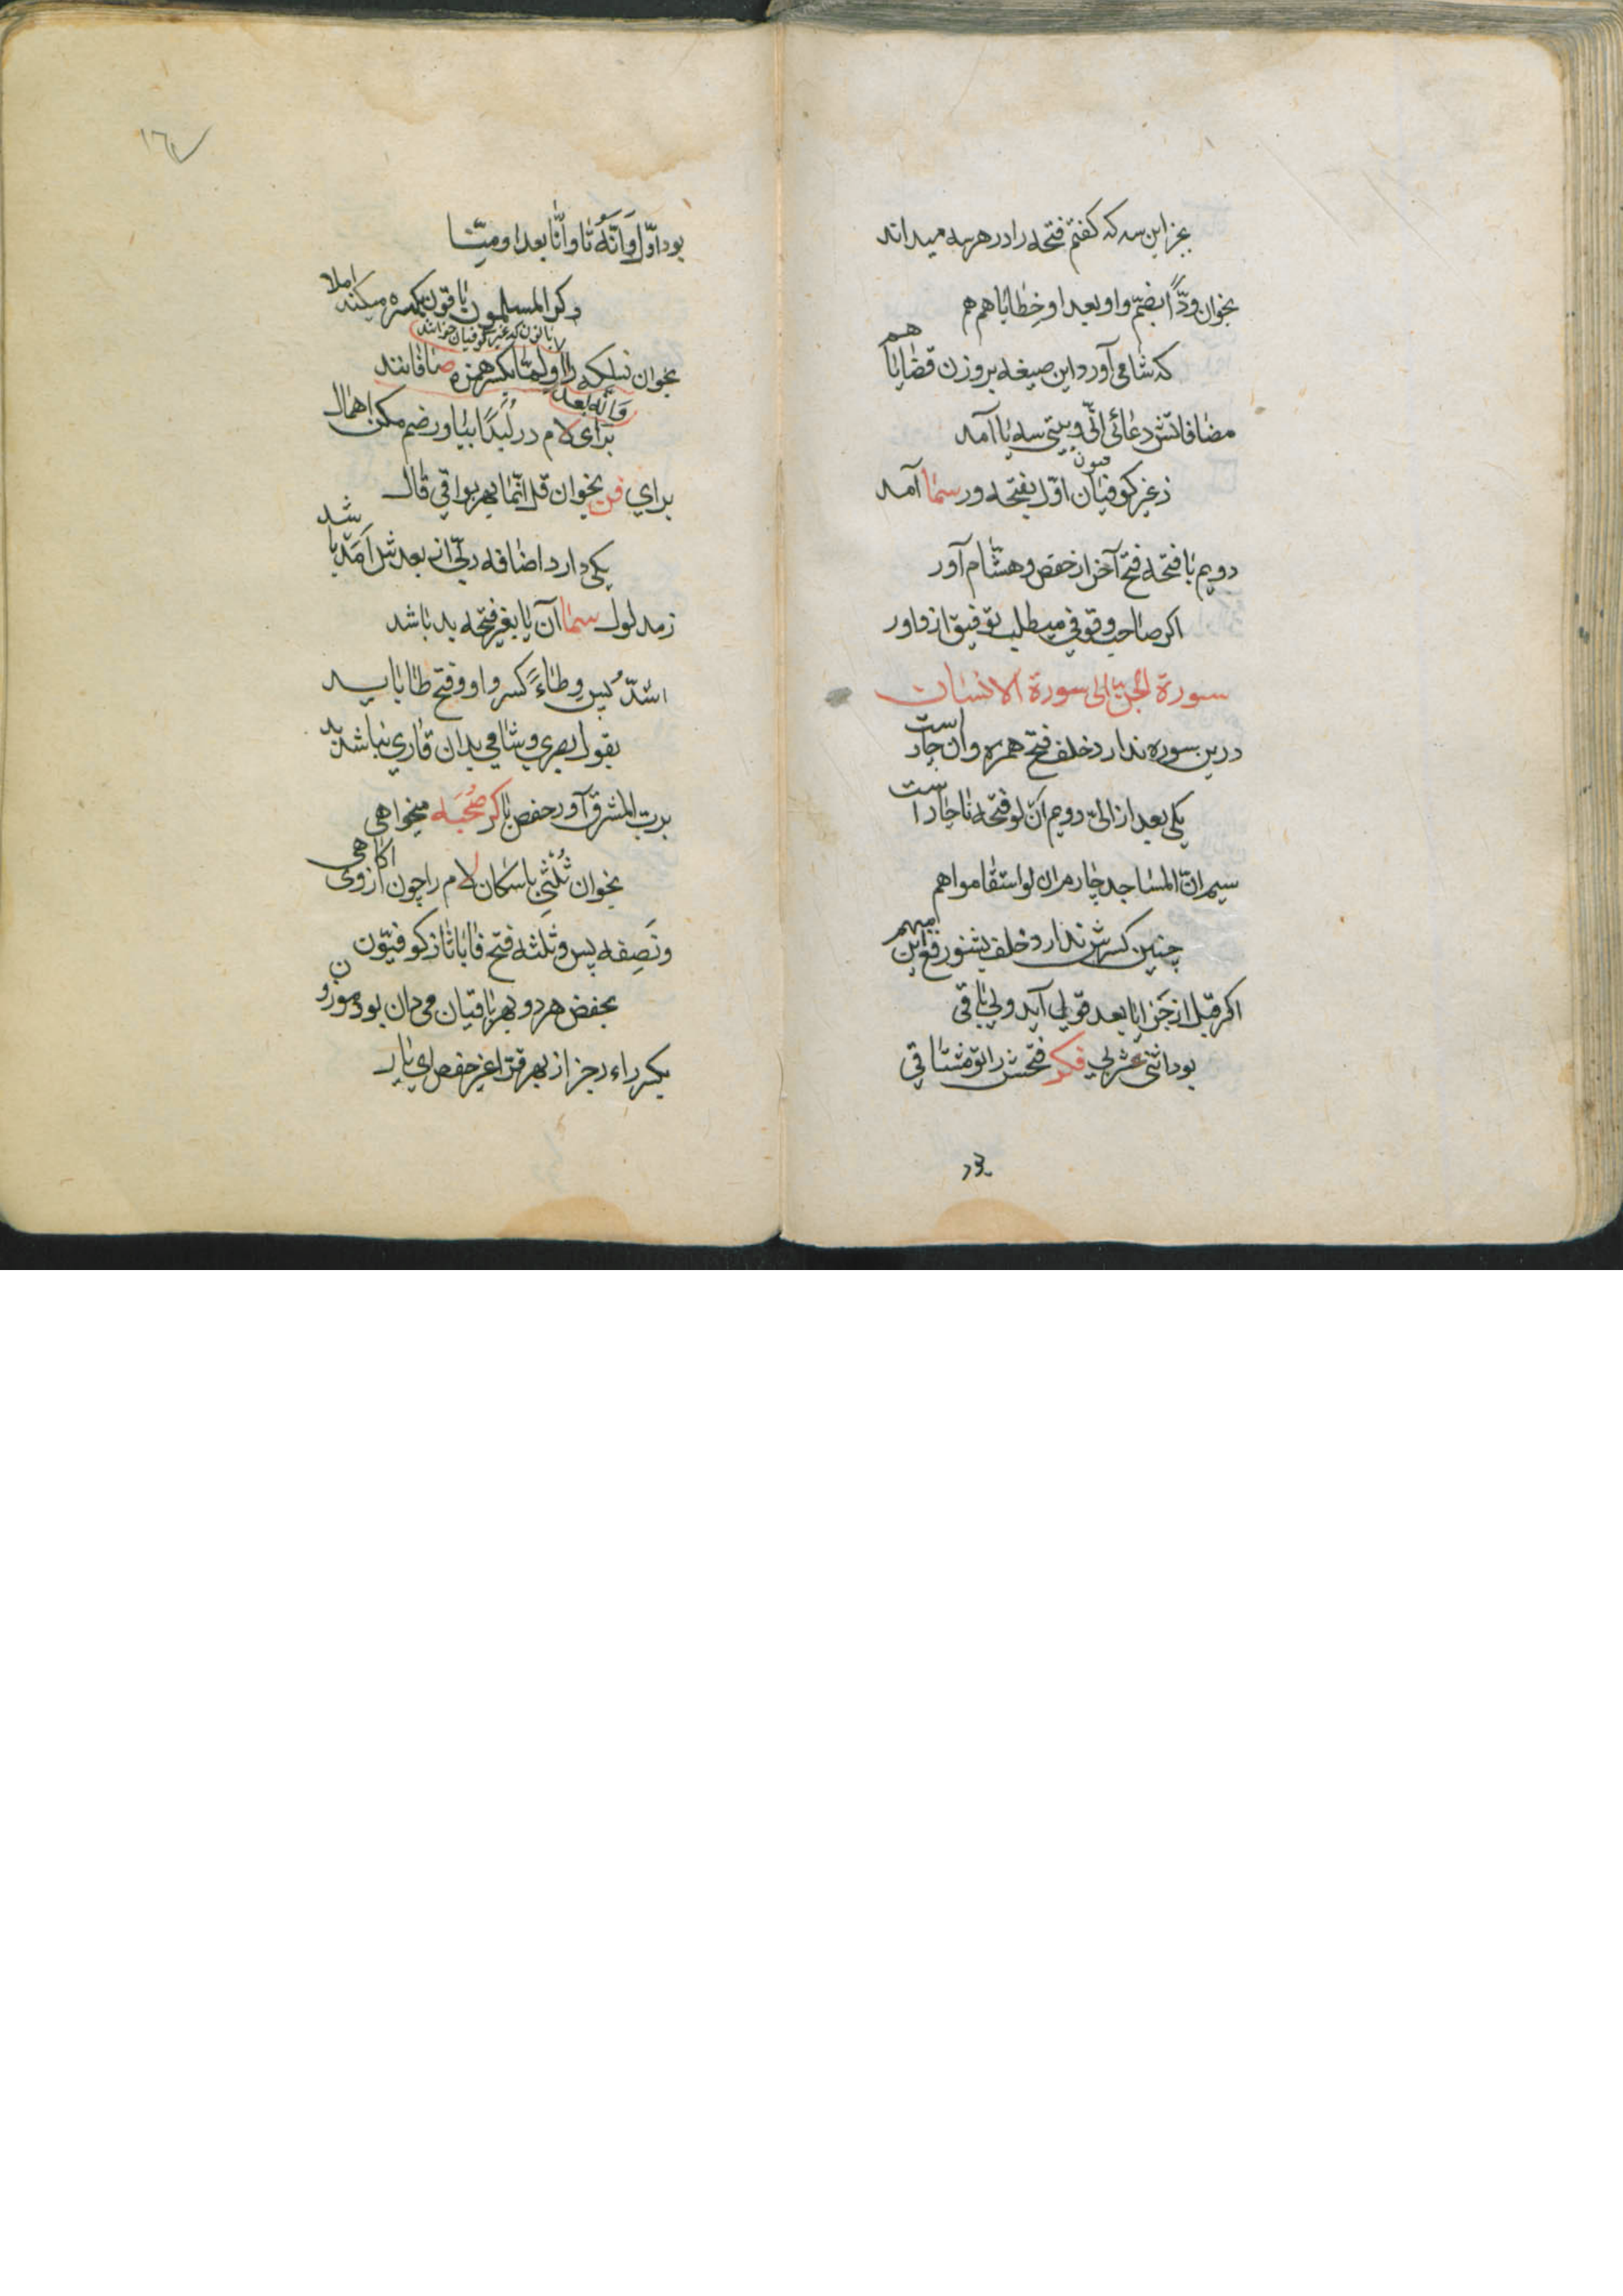 بجز این سه که کفتم فتحه را در هر سه میداند
بخوان ودّاً بضمّ واو بعد او خطایا هم هم
که شامی آورد این صیغه بر وزن قضایا هم
مضافاتش دعائی انّی و بیتی سه یا آمد
ز غیر کوفیان اوّل بفتحه ور سما آمد
دویم با فتحه فتح آخر از حفص و هشام آور
اکر صاحب وقوفی میطلب توفیق از داور
سورة الجنّ الی سورة الانسان
درین سوره ندارد خلف فتح همزه وان چار است
یکی بعد از الیّ دویم انّ لو فتحه ناچار است
سیم انّ المساجد چارم ان لو استقاموا هم
چنین کسرش ندارد خلف بشنو رفع این مبهم
اکر قبل از جَزا یا بعد قول آید ولی باقی
بود اثنی عشر لی فکر فتحش را تو مشتاقی
د‍ز
١٦٧
بود اوّل وَاَنَّهُ تا وانّا بعد او منّا
دکر المسلمون باقون بکسره میکند املا
با نون که غیر کوفیان خوانند
بخوان نسلکه را و لمّا بکسر همزه صافانند
وانّه بعد
برای لام در لُبَدًا بیاور ضم مکن اهمال
برای فن بخوان قل انّما بهر بواقی قال
یکی دارد اضافه ربّی از بعدش اَمَدًا باشد
ز مدلول سما آن یا بغیر فتحه بد باشد
اشدّ پس وِطاءً کسر واو و فتح طا باید
بقول بصری و شامی بدان قاری نباشد بد
برب المشرق آور حفض با کر صُحبَه میخواهی
بخوان ثُلْثَی باسکان لام را چون از وی آکاهی
ونَصِفه پس وثلثه فتح فا با ثا ز کوفیّون
بخفض هر دو بهر باقیان می دان بود موزون
بکسر راء رجز از بهر قرّا غیر حفص ای یار